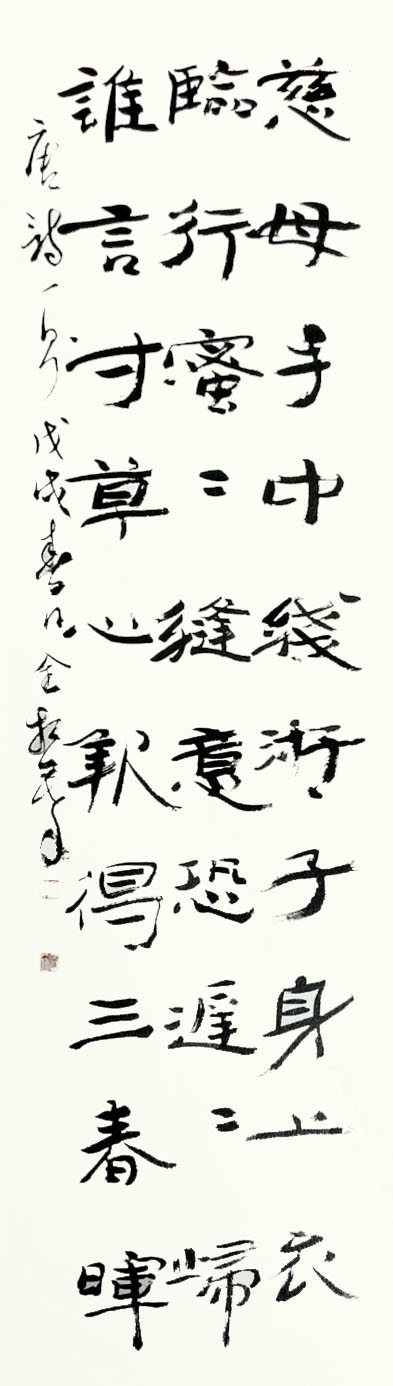 慈母手中綫游子身上衣
臨行蜜〻縫意恐遲〻歸
誰言寸草心報得三春暉
唐詩一首戊戌春